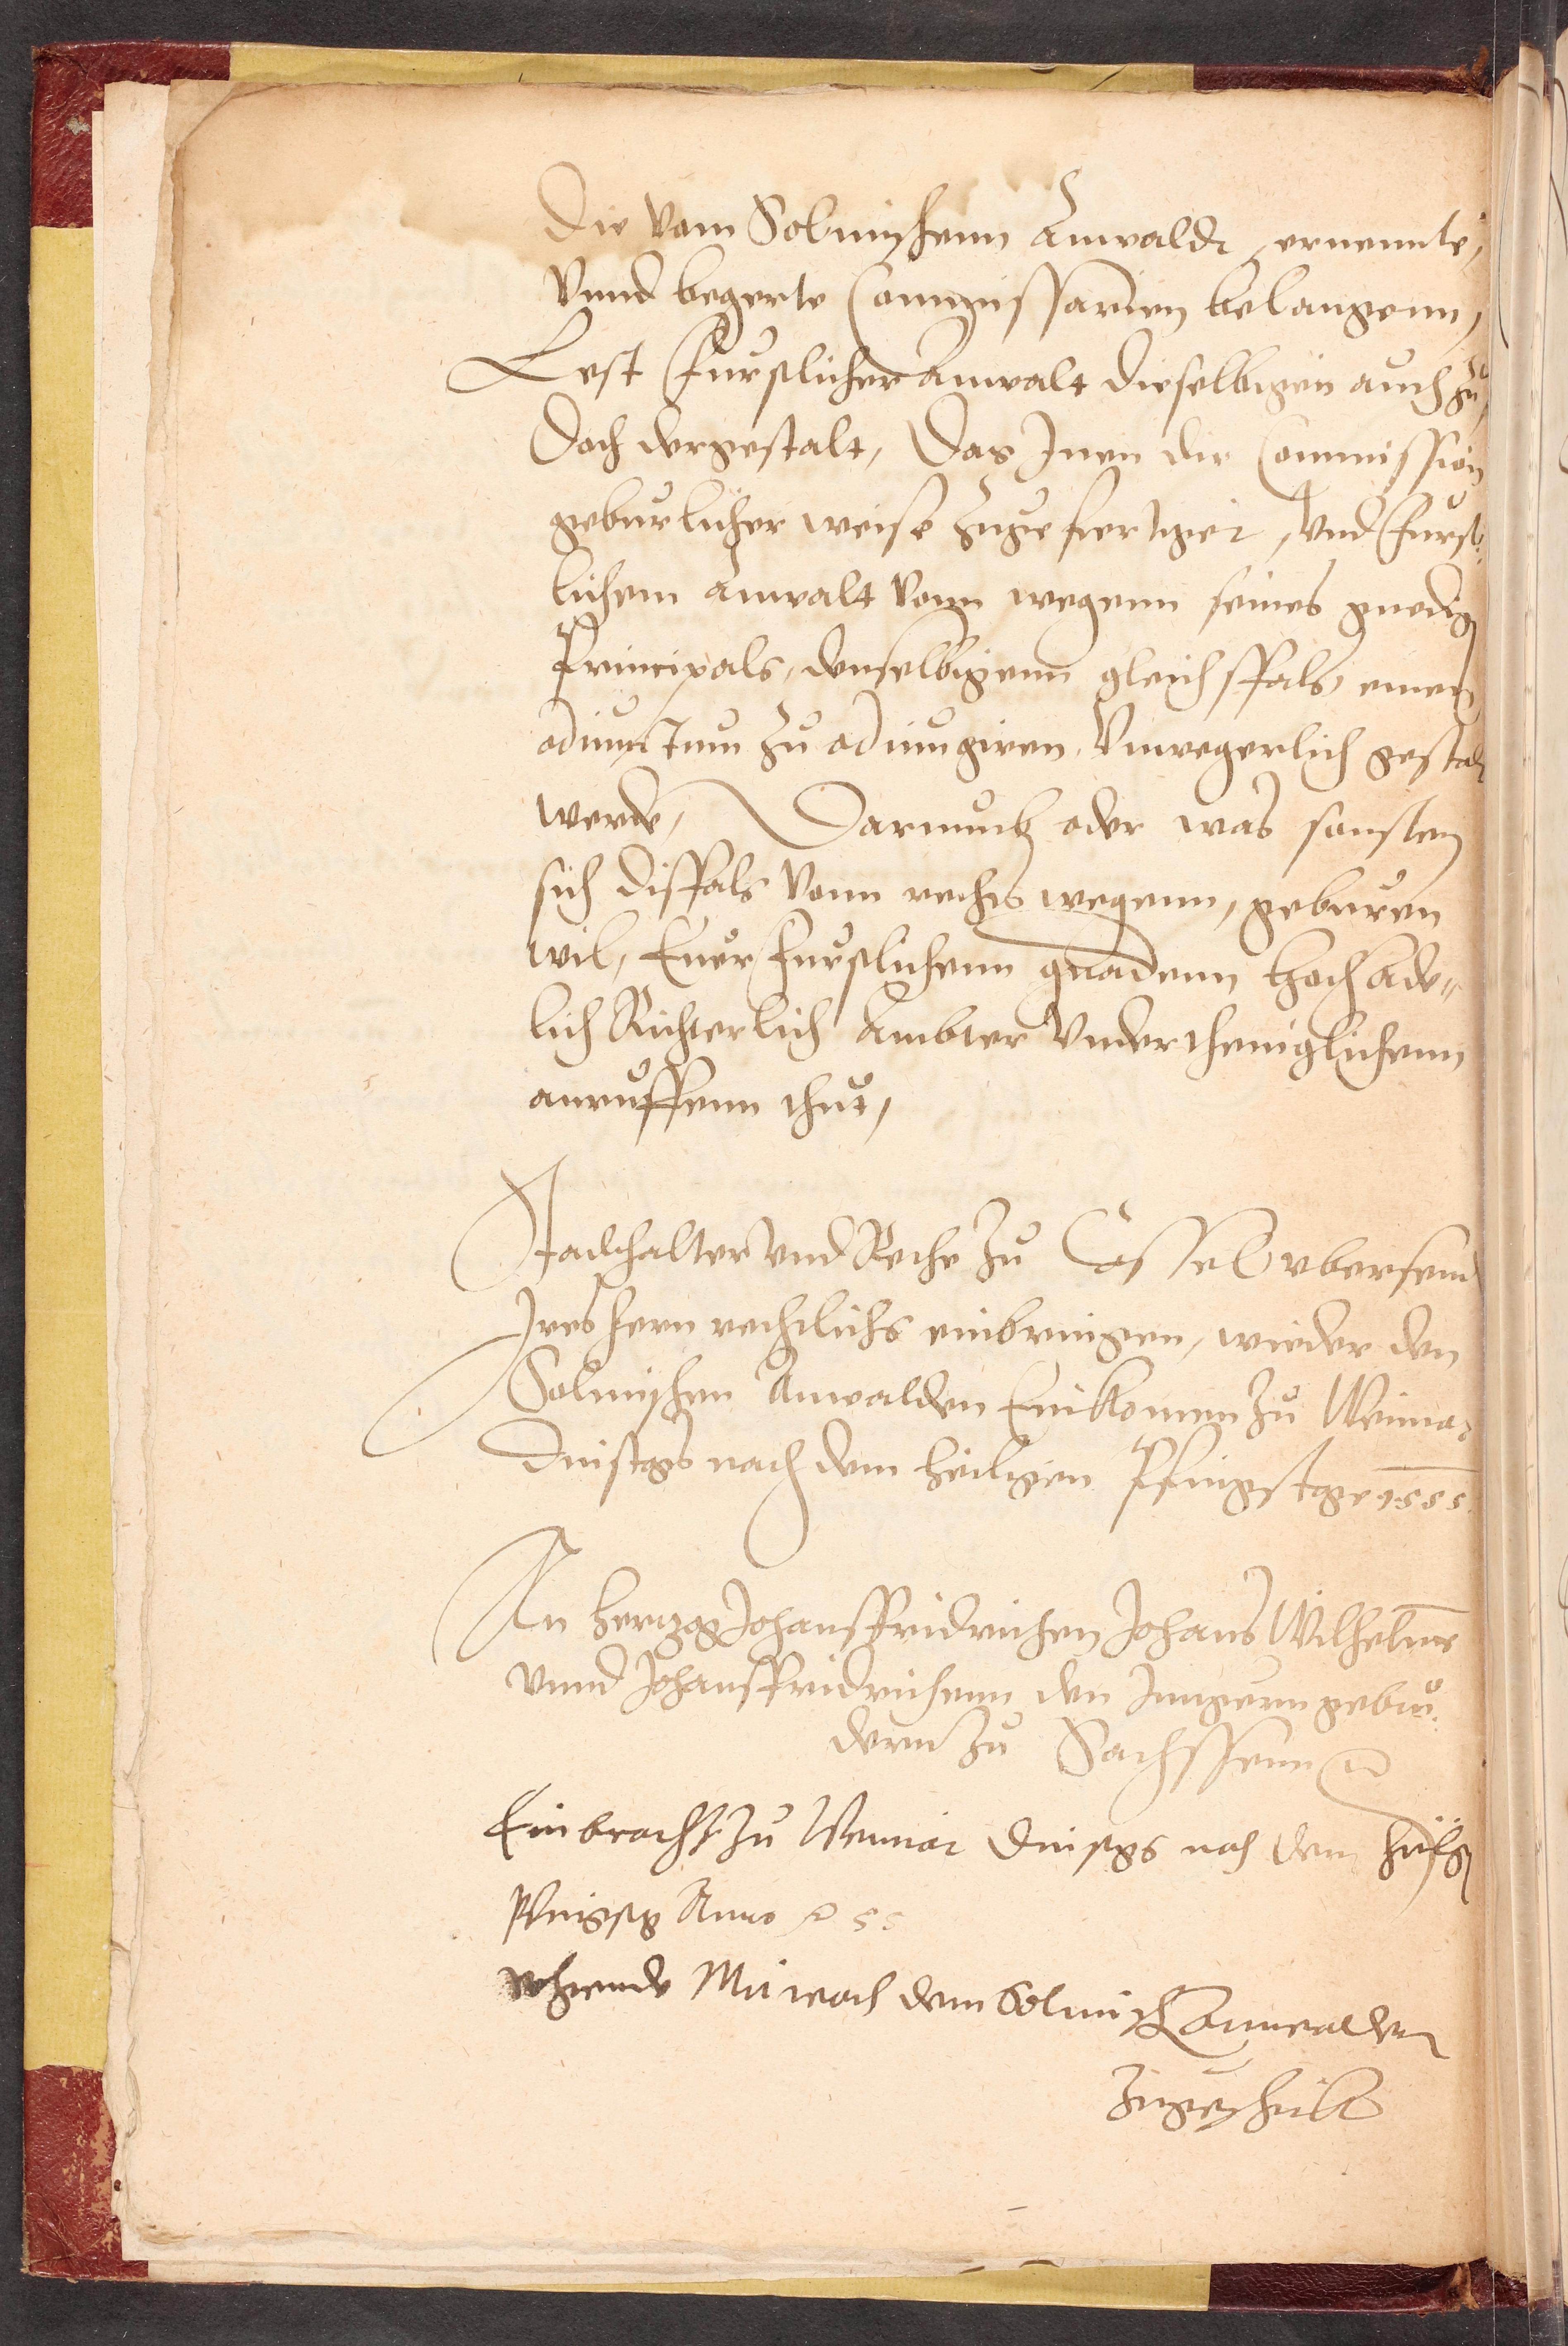 Die vom Solmischenn Anwaldt, ernennte,
Vnnd begerte Commissarien belangenn,
Lest Furstlicher Anwalt dieselbigen auch zu,
Doch dergestalt, Das Jnen die Commission
geburlicher weise zugefertiget, Vnd Furst:
lichem Anwalt Vonn wegenn seines gnedig
Principals, denselbigenn gleichsfals einen
adiunctum zu adiungiren, Vnwegerlich gestat
werde, Darumb oder was sonsten
sich disfals Vonn rechts wegenn, geburen
wil, Euer Furstlichenn gnadenn Hochade„
lich Richterlich Ambter Vndertheniglichenn
anruffenn thut,
Stadthalter vnd Rethe zu Cassel vbersend
Jres hern rechtlichs einbringen, wieder den
Solmischen Anwalden Einkomen zu Weimar
Dinstags nach dem heiligen Pfingstage 1555.
An hertzog Johansfridrichen Johans Wilhelme
vnnd Johansfridrichenn den Jungern gebru:
dern zu Sachssenn
Einbracht zu Weimar Dinstags nach dem
Pfingstag Anno 55
Mitwoch dem Solmisch Anwalden
Zugeschickt